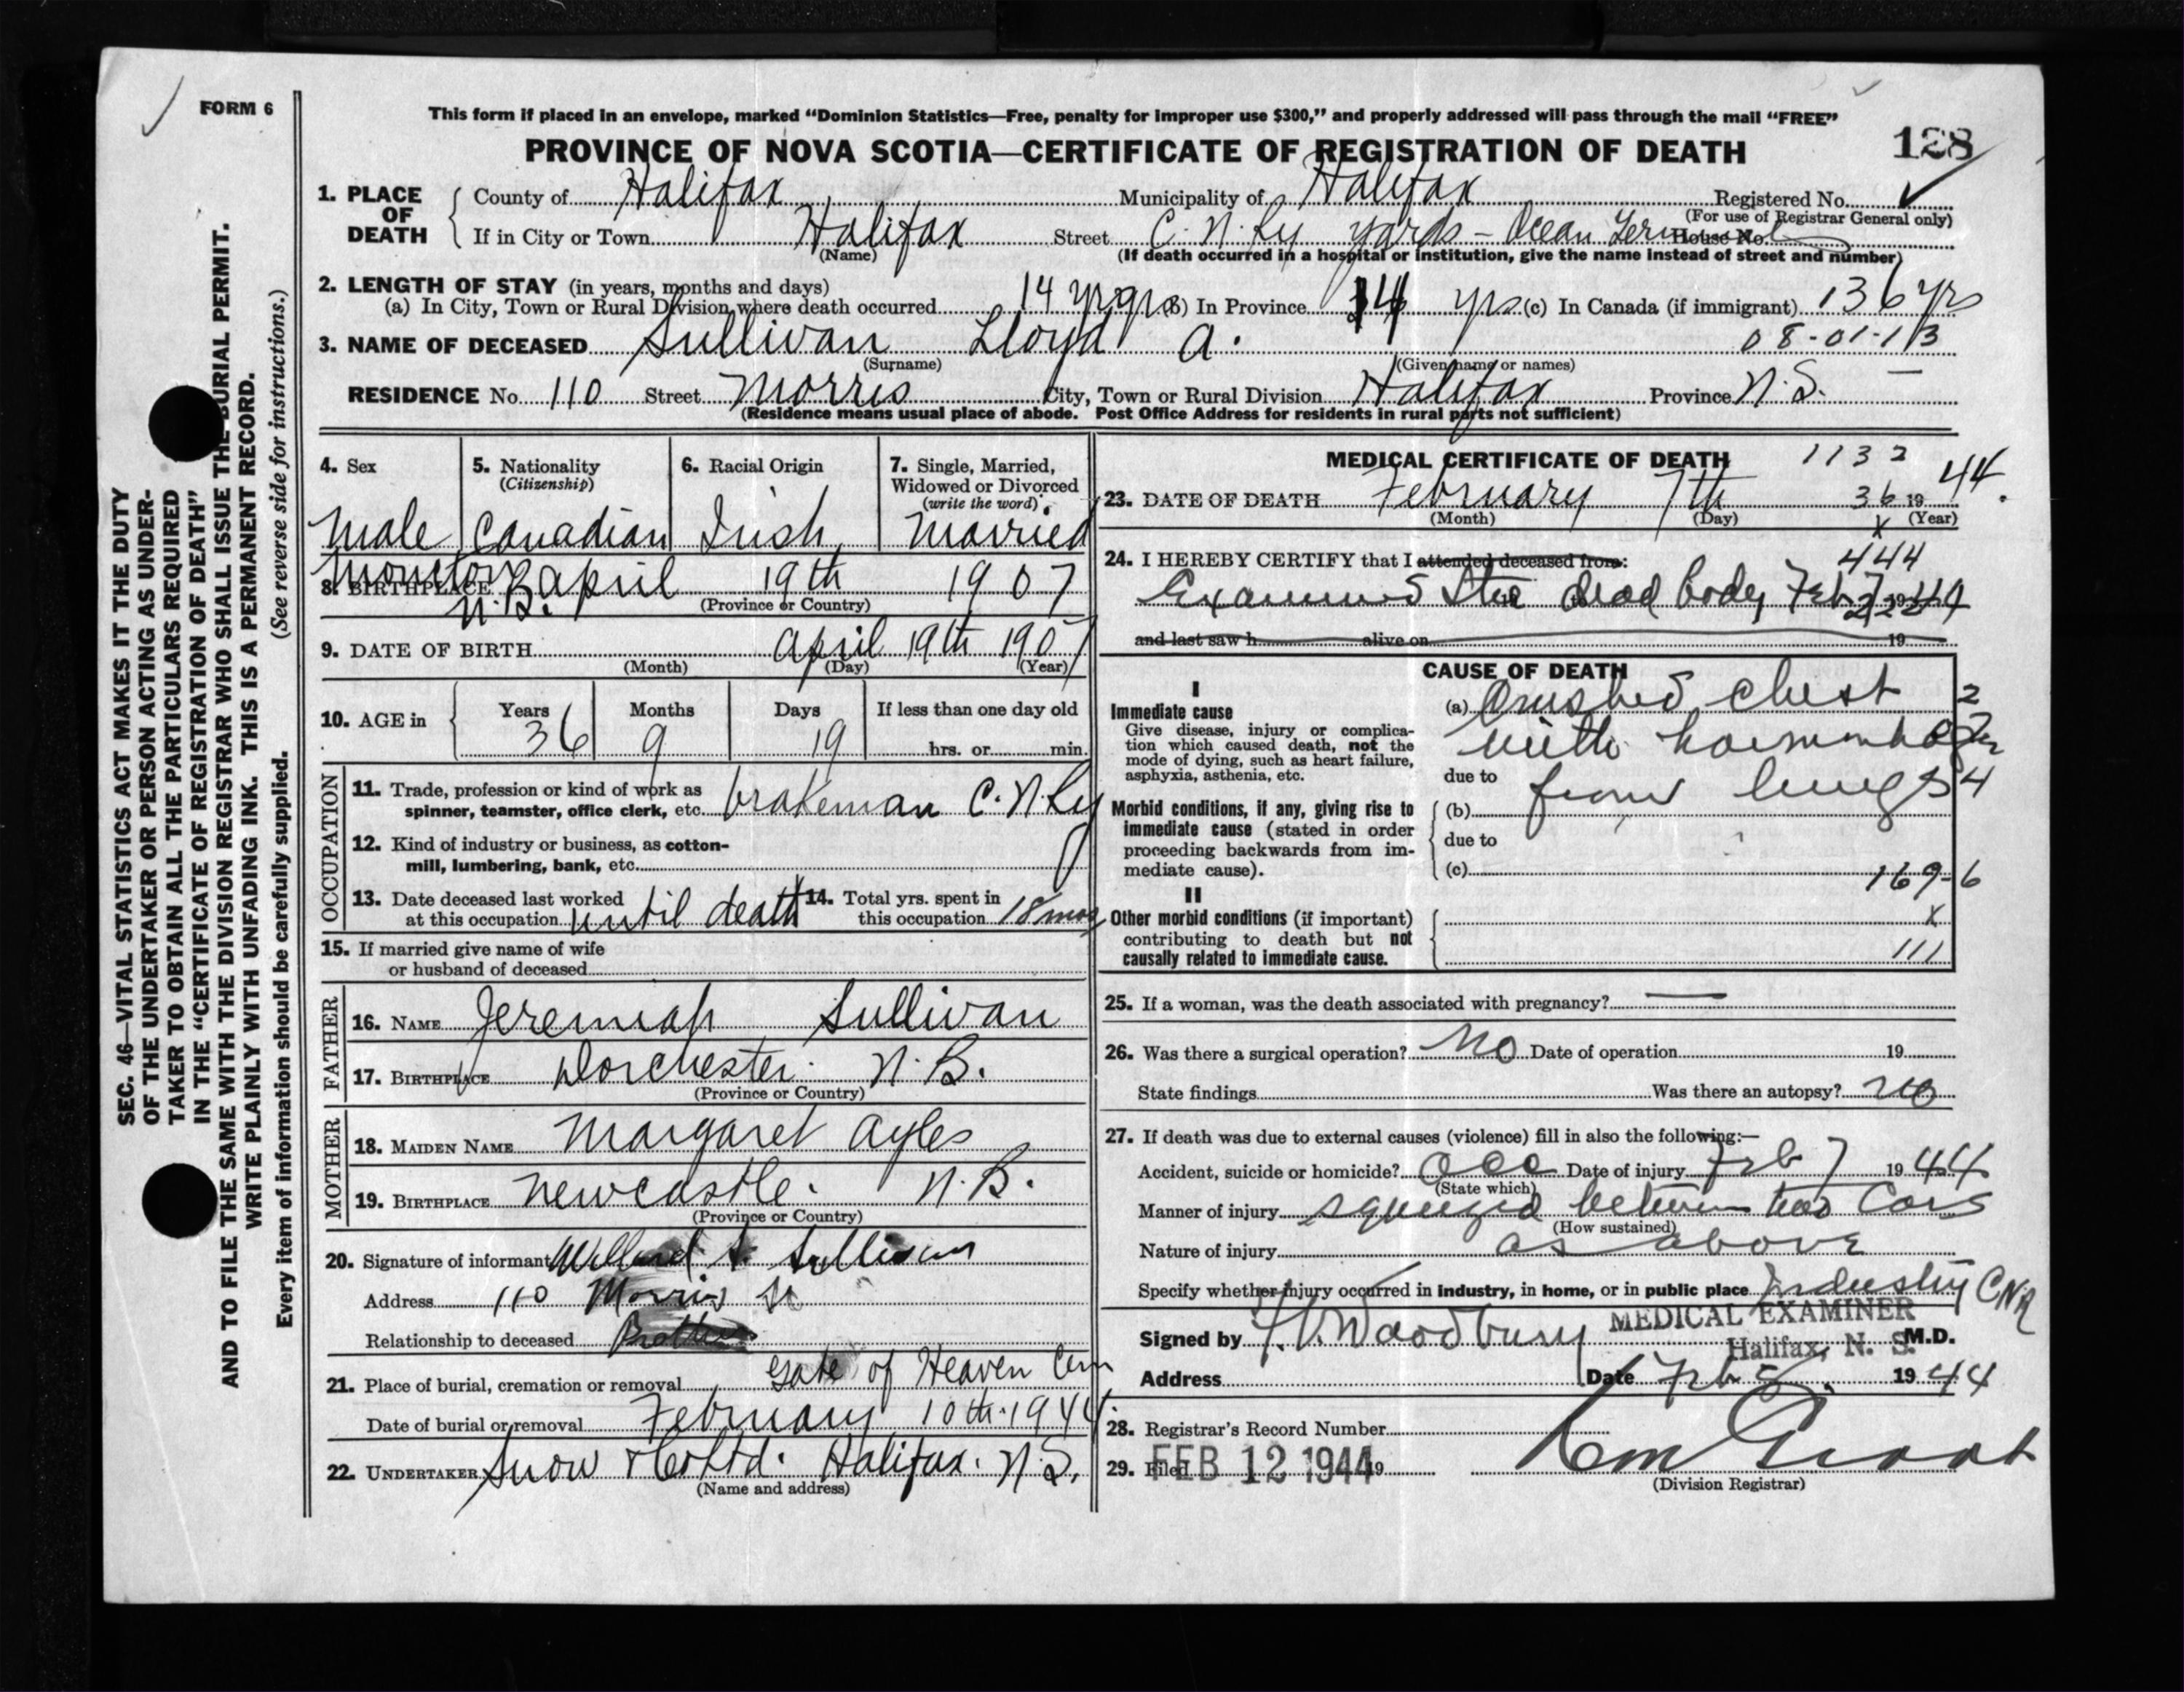 FORM 6
This form if placed in an envelope, marked “Dominion Statistics—Free, penalty for improper use $300,” and properly addressed will pass through the mail “FREE”
PROVINCE OF NOVA SCOTIA—CERTIFICATE OF REGISTRATION OF DEATH
128
1. PLACE OF DEATH
County of Halifax Municipality of Halifax Registered No.
(For use of Registrar General only)
If in City or Town Halifax Street C. N. Ry yards - Ocean House No.
(Name) (If death occurred in a hospital or institution, give the name instead of street and number)
2. LENGTH OF STAY (in years, months and days)
(a) In City, Town or Rural Division where death occurred 14 yrs (b) In Province 14 yrs (c) In Canada (if immigrant) 136 yrs
3. NAME OF DECEASED Sullivan Lloyd A. 08-01-13
(Surname) (Given name or names)
RESIDENCE No. 110 Street Morris City, Town or Rural Division Halifax Province N.S.
(Residence means usual place of abode. Post Office Address for residents in rural parts not sufficient)
4. Sex 5. Nationality (Citizenship) 6. Racial Origin 7. Single, Married, Widowed or Divorced (write the word)
Male Canadian Irish Married
8. BIRTHPLACE Moncton N.B. April 19th 1907
(Province or Country)
9. DATE OF BIRTH April 19th 1907
(Month) (Day) (Year)
10. AGE in Years Months Days If less than one day old
36 9 19 hrs. or min.
OCCUPATION
11. Trade, profession or kind of work as
spinner, teamster, office clerk, etc. brakeman C.N.Ry
12. Kind of industry or business, as cotton-
mill, lumbering, bank, etc.
13. Date deceased last worked 14. Total yrs. spent in
at this occupation until death this occupation 18 mos
15. If married give name of wife
or husband of deceased
FATHER
16. NAME Jeremiah Sullivan
17. BIRTHPLACE Dorchester N.B.
(Province or Country)
MOTHER
18. MAIDEN NAME Margaret Ayles
19. BIRTHPLACE Newcastle. N.B.
(Province or Country)
20. Signature of informant Sullivan
Address 110 Morris St
Relationship to deceased Brother
21. Place of burial, cremation or removal Gate of Heaven Cem
Date of burial or removal February 10th 1944.
22. UNDERTAKER Snow & Co Ltd. Halifax. N.S.
(Name and address)
MEDICAL CERTIFICATE OF DEATH 1132
23. DATE OF DEATH February 7th 36 19 44.
(Month) (Day) x (Year)
24. I HEREBY CERTIFY that I attended deceased from: 444
Examined the dead body Feb 7 19 44
and last saw h alive on 19
CAUSE OF DEATH
I
Immediate cause
Give disease, injury or complica-
tion which caused death, not the
mode of dying, such as heart failure,
asphyxia, asthenia, etc.
(a) Crushed chest 2
with
due to from lungs 4
Morbid conditions, if any, giving rise to
immediate cause (stated in order
proceeding backwards from im-
mediate cause).
(b)
due to
(c)
169-6
II
Other morbid conditions (if important)
contributing to death but not
causally related to immediate cause.
x
111
25. If a woman, was the death associated with pregnancy? —
26. Was there a surgical operation? No Date of operation 19
State findings Was there an autopsy? no
27. If death was due to external causes (violence) fill in also the following:—
Accident, suicide or homicide? acc Date of injury Feb 7 19 44
(State which)
Manner of injury squeezed between two Cars
(How sustained)
Nature of injury as above
Specify whether injury occurred in industry, in home, or in public place Industry CNR
MEDICAL EXAMINER
Signed by Woodbury M.D.
Halifax, N. S.
Address Date Feb 8. 19 44
28. Registrar's Record Number
29. Filed FEB 12 1944 19
(Division Registrar)
SEC. 46—VITAL STATISTICS ACT MAKES IT THE DUTY
OF THE UNDERTAKER OR PERSON ACTING AS UNDER-
TAKER TO OBTAIN ALL THE PARTICULARS REQUIRED
IN THE “CERTIFICATE OF REGISTRATION OF DEATH”
AND TO FILE THE SAME WITH THE DIVISION REGISTRAR WHO SHALL ISSUE THE BURIAL PERMIT.
WRITE PLAINLY WITH UNFADING INK. THIS IS A PERMANENT RECORD.
Every item of information should be carefully supplied. (See reverse side for instructions.)